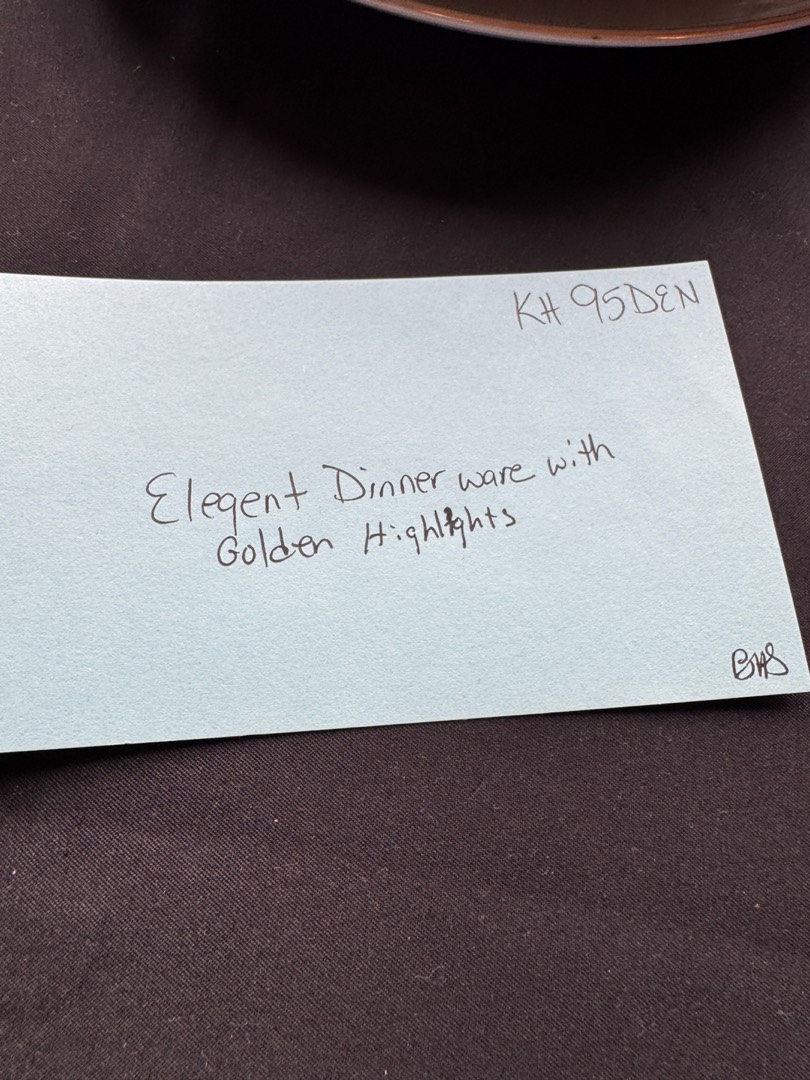 KH 95DEN
Elegent Dinner ware with
Golden Highlights
BHS